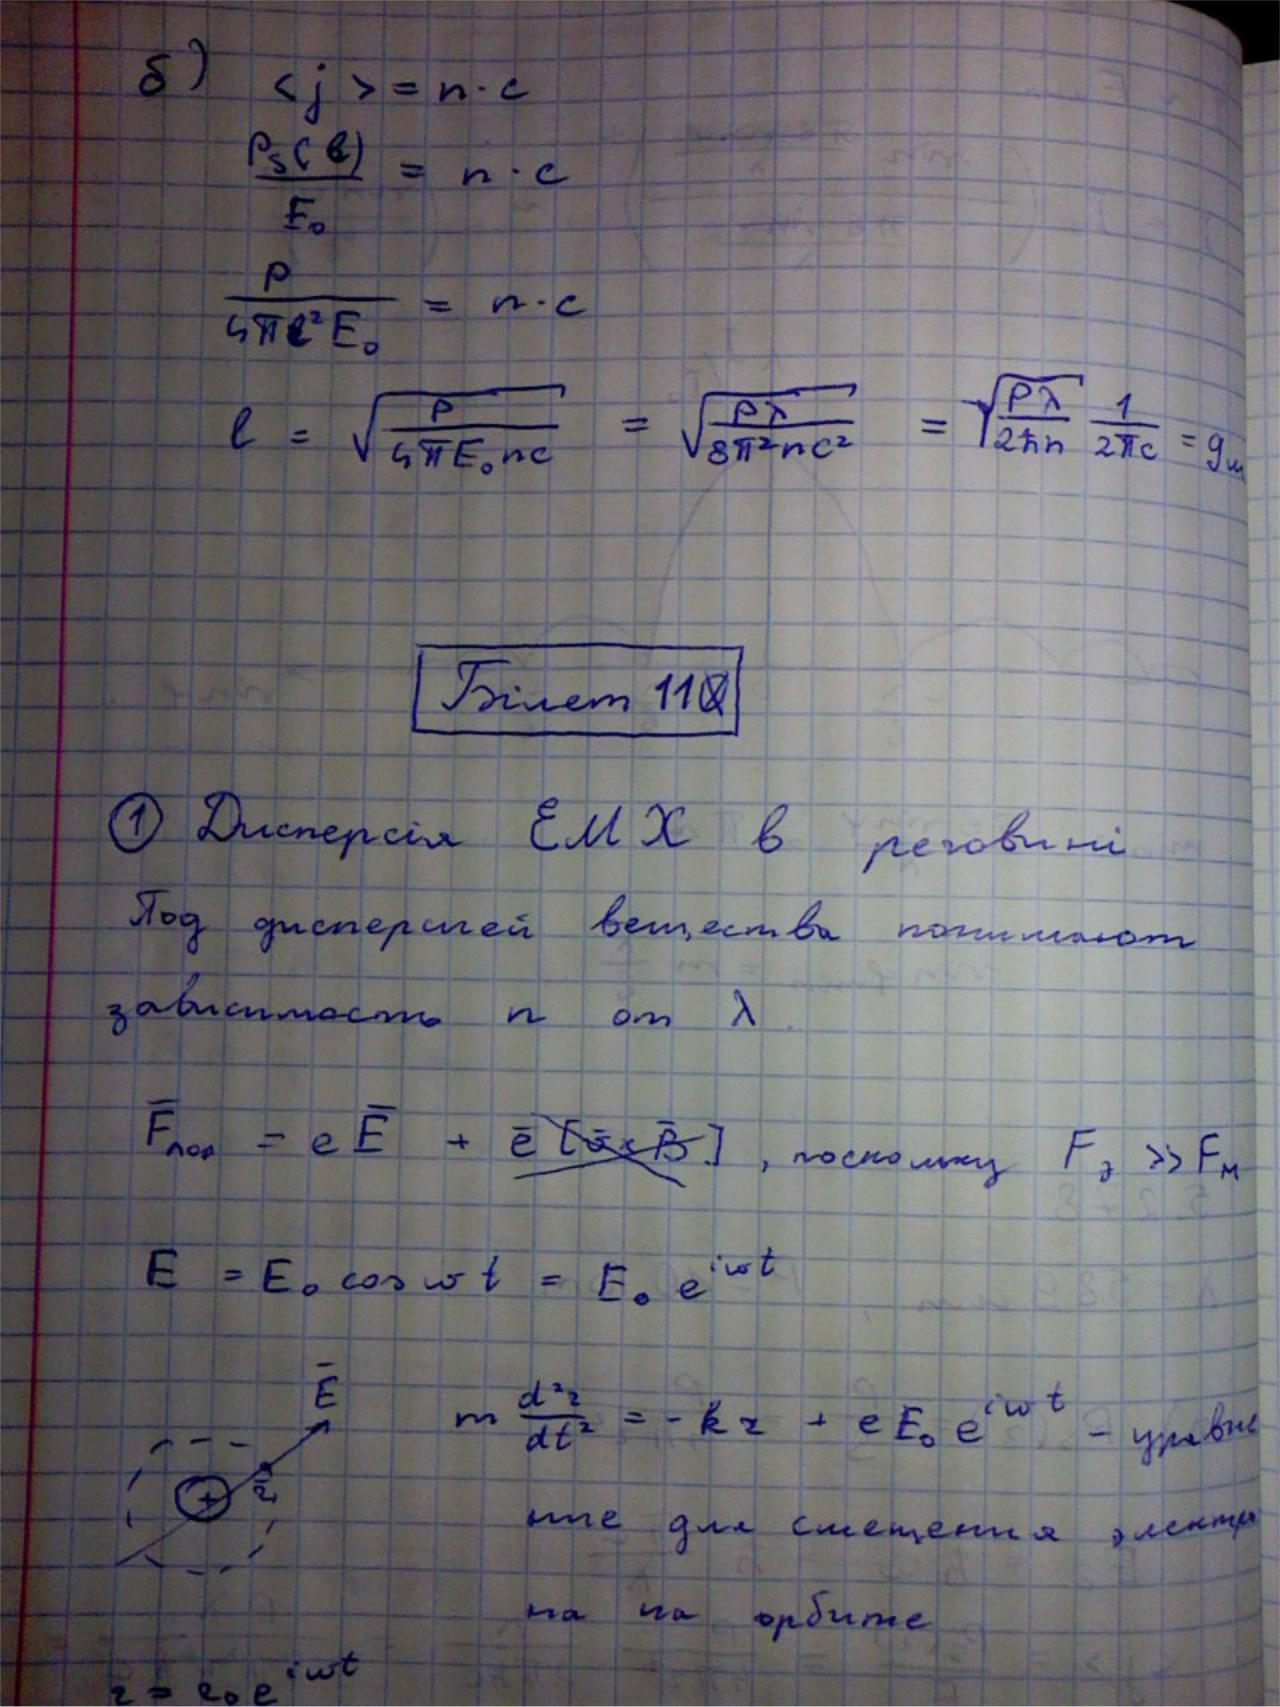 б) <j> = n·c
Ps(l) / E₀ = n·c
P / 4πl²E₀ = n·c
l = √(P / 4πE₀nc) = √(Pλ / 8π²nc²) = √(Pλ / 2ħn) 1 / 2πc = 9м
Білет 11
① Дисперсія ЕМХ в речовині
Под дисперсией вещества понимают
зависимость n от λ.
F̄лор = eĒ + ē[v̄×B̄], поскольку Fэ >> Fм
E = E₀ cos ωt = E₀ e^{iωt}
Ē
m d²r/dt² = -kr + eE₀ e^{iωt} - уравне
+ r̄
ние для смещения электро
на на орбите
r = r₀ e^{iωt}